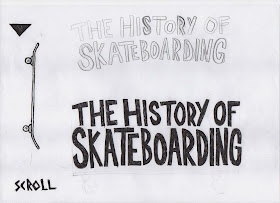 THE HISTORY OF
SKATEBOARDING
THE HISTORY OF
SKATEBOARDING
SCROLL